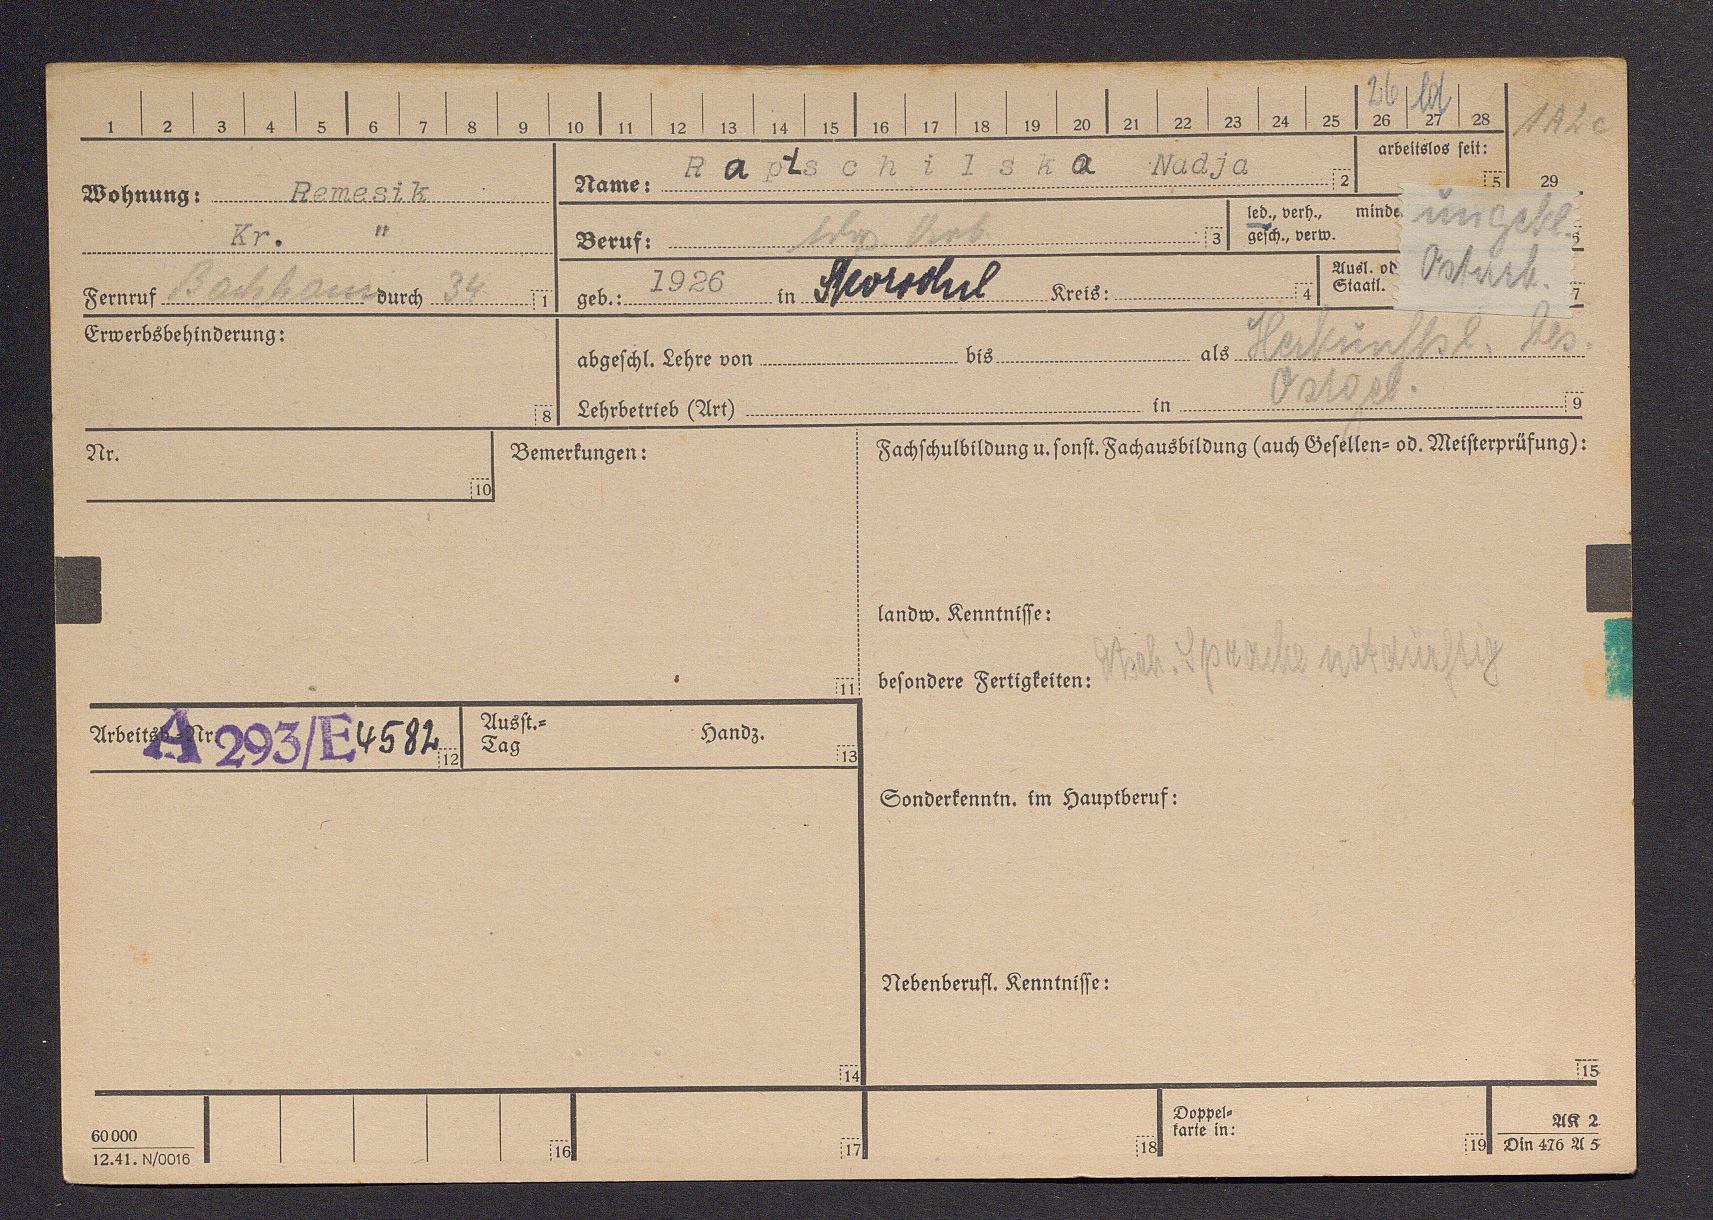 1 2 3 4 5 6 7 8 9 10 11 12 13 14 15 16 17 18 19 20 21 22 23 24 25 26 27 28 29
26
1A2c
Name: Raptschilska Nadja 2
arbeitslos seit: 5
Wohnung: Remesik
Kr. "
Beruf: Arb. 3
led., verh., minde
gesch., verw.
ungekl.
Ostarb.
Fernruf durch 34 1
geb.: 1926 in Kreis: 4
Ausl. od
Staatl. 7
Erwerbsbehinderung: 8
abgeschl. Lehre von bis als
Herkunftsl. bes.
Ostgeb.
Lehrbetrieb (Art) in 9
Nr. 10
Bemerkungen: 11
Fachschulbildung u. sonst. Fachausbildung (auch Gesellen- od. Meisterprüfung):
landw. Kenntnisse:
besondere Fertigkeiten: dtsch. Sprache notdürftig
Arbeitsb.-Nr. A 293/E 4582 12
Ausst.-
Tag
Handz. 13
Sonderkenntn. im Hauptberuf:
Nebenberufl. Kenntnisse:
14
15
60000
12.41. N/0016
16
17
18
Doppel-
karte in: 19
AK 2
Din 476 A 5